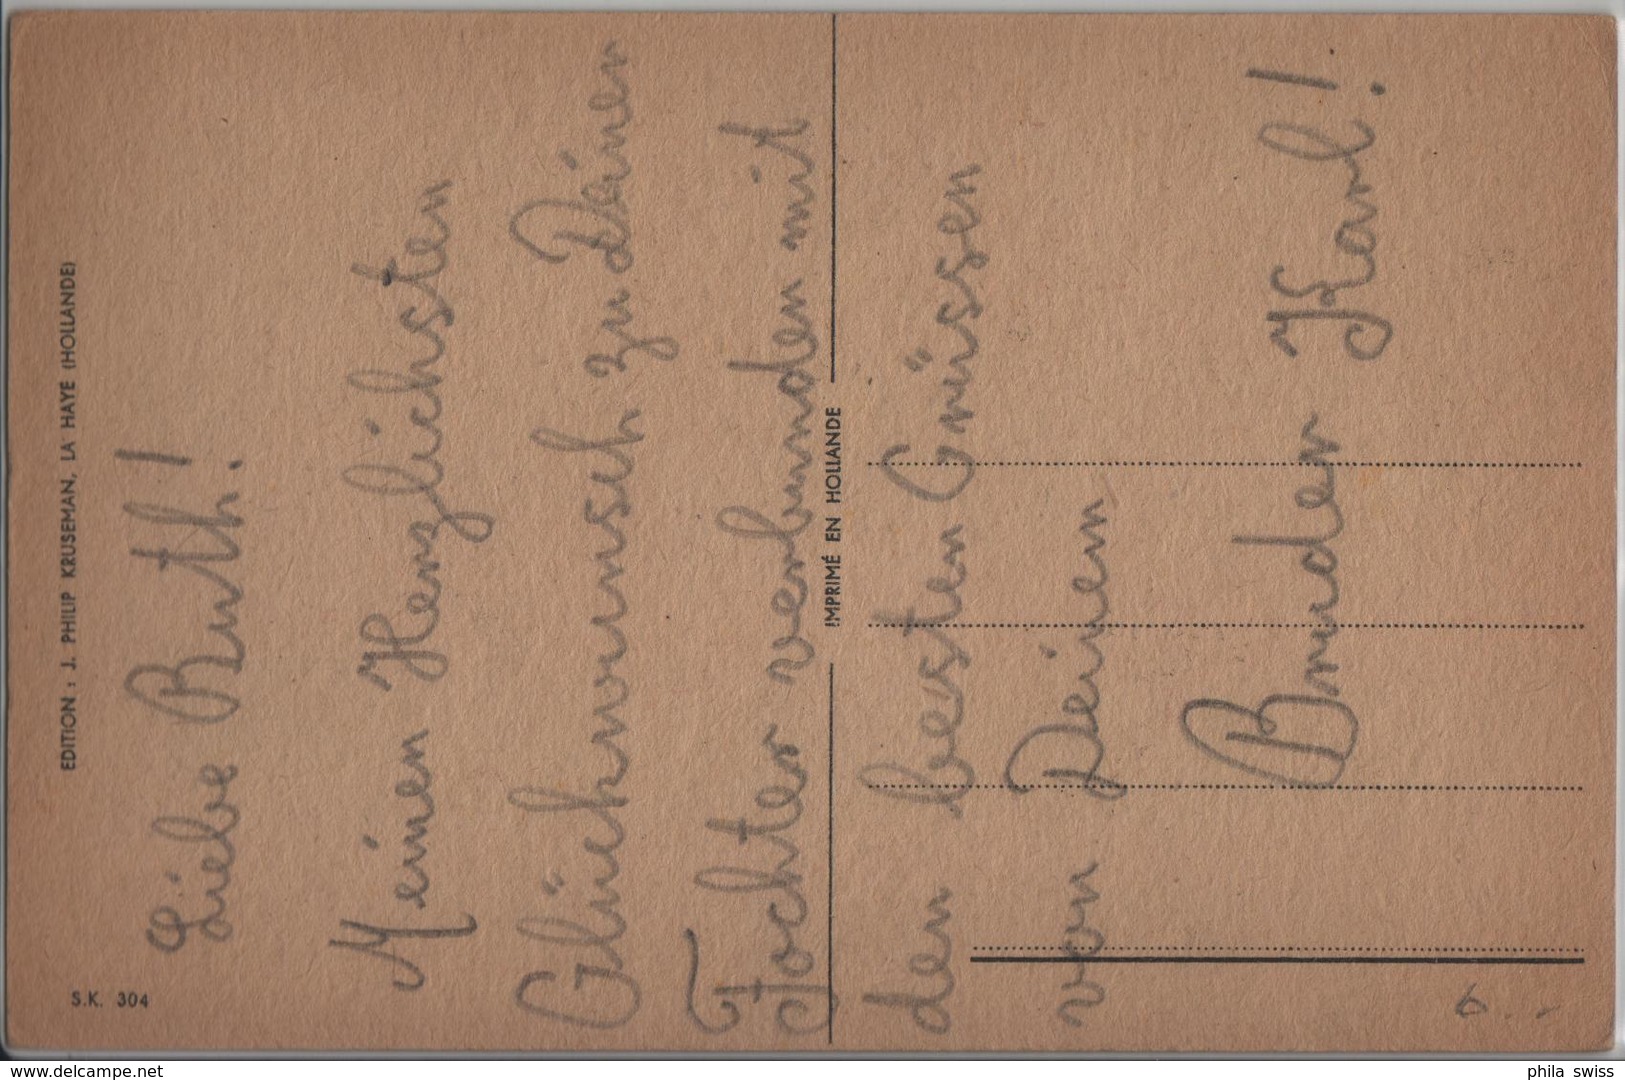 EDITION : J. PHILIP KRUSEMAN, LA HAYE (HOLLANDE)
S.K. 304
Liebe Ruth!
Meinen Herzlichsten
Glückwunsch zu Deiner
Tochter verbunden mit
den besten Grüssen
von Deinem
Bruder Karl!
IMPRIMÉ EN HOLLANDE
6.-
www.delcampe.net
phila swiss